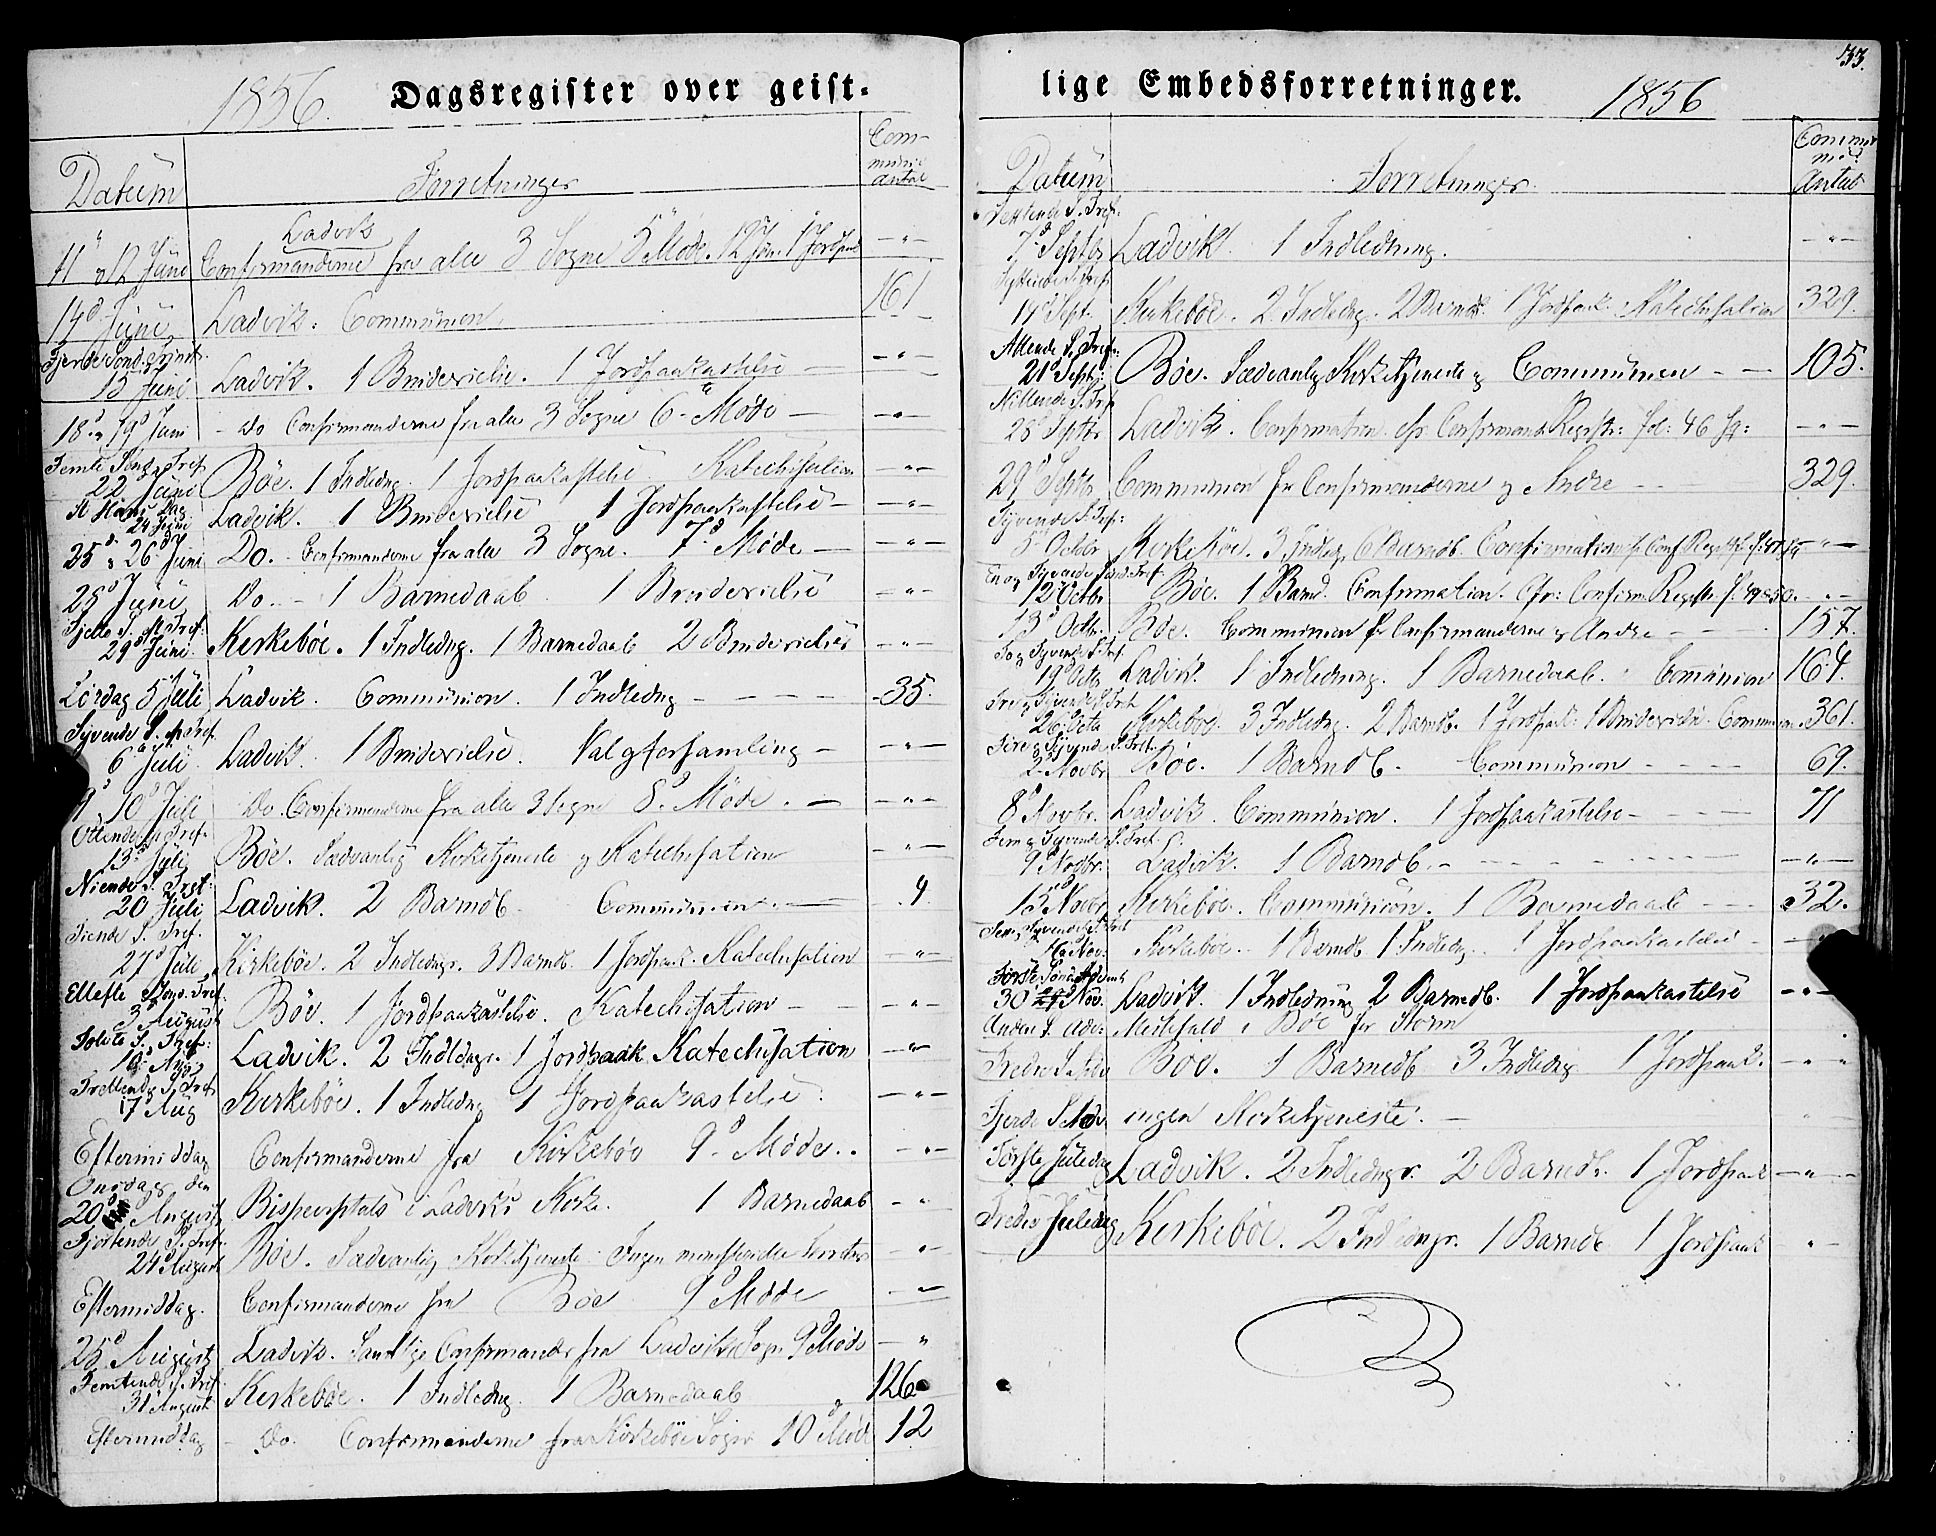 1856. Dagsregister over geist-
Datum Forretninger Communic antal
Ladvik
11 og 12 Juni Confirmanderne fra alle 3 Sogne 5 Møde. 12 Juni 1 Jordpaak — " —
14d Juni Ladvik. Communion 161
Fjerde Sond. e. Trinit.
15 Juni Ladvik. 1 Brudevielse. 1 Jordpaakastelse — " —
18 og 19d Juni - Do Confirmanderne fra alle 3 Sogne 6te Møde — " —
Femte Sond. e. Tref.
22 Juni Böe. 1 Indledng. 1 Jordpaakastelse Katechisation — " —
St Hans Dag
24 Juni Ladvik. 1 Brudevielse 1 Jordpaakastelse — " —
25 og 26d Juni Do. - Confirmanderne fra alle 3 Sogne. 7d Møde — " —
28d Juni Do. - 1 Barnedaab 1 Brudevielse — " —
Sjette S. e. Tref.
29d Juni Kirkebøe. 1 Indledng. 1 Barnedaab 2 Brudevielser — " —
Lørdag 5 Juli Ladvik. Communion. 1 Indledng - 35.
Syvende S. e. Tref.
6 Juli Ladvik. 1 Brudevielse. Valgforsamling — " —
9 10d Juli Do. Confirmanderne fra alle 3 Sogne 8d Møde. — " —
Ottende S. Tref.
13d Juli Böe. Sædvanlig Kirketjeneste og Katechisation — " —
Niende S. Tref.
20 Juli Ladvik. 2 Barndb. Communion. 4.
Tiende S. Tref.
27d Juli Kirkebøe. 2 Indledngr. 3 Barndb. 1 Jordpaak. Katechisation — " —
Ellefte Sond. Tref.
3 August Böe. 1 Jordpaakastelse. Katechisation — " —
Tolvte S. Tref.
10d Aug. Ladvik. 2 Indledngr. 1 Jordpaak. Katechisation — " —
Trettende S. Tref.
17 Aug Kirkebøe. 1 Indledng 1 Jordpaakastelse. — " —
Eftermiddag Confirmanderne fra Kirkebøe 9d Møde. — " —
Onsdag den
20d August Bispevisitats i Ladviks Kirke. 1 Barnedaab — "
Fjortende S. Tref.
24 August Böe. Sædvanlig Kirketjeneste. Ingen — " —
Eftermiddag. Confirmanderne fra Böe 9d Møde — " —
25d August Ladvik. Samtlige Confirmander fra Ladviks Sogn 9d Møde — "
Femtende S. Tref.
31 August Kirkebøe. 1 Indledng. 1 Barnedaab 126
Eftermiddag - Do. Confirmanderne fra Kirkebøe Sogn 10d Møde 12
33.
lige Embedsforretninger. 1856
Datum Forretninger. Communic Antal
Sextende S. Tref.
7d Septbr Ladvik. 1 Indledning. — " —
Syttende S. Tref.
14d Sept. Kirkebøe. 2 Indledng. 2 Barndb. 1 Jordpaak. Katechisation 329.
Attende S. Tref.
21d Septb. Böe. Sædvanlig Kirketjeneste og Communion — — 105.
Nittende S. Tref
28 Septbr Ladvik. Confirmation. cfr Confirmand. Registr: fol: 46 fg: — " —
29d Septbr Communion for Confirmanderne og Andre — 329.
Tyvende S. Tref:
5d Octbr Kirkebøe. 3 Indledng. 6 Barndb. Confirmation cfr. Conf. Registr. — " —
En og Tyvende Sond. Tref
12 Octbr Böe. 1 Barnd. Confirmation. Cfr: Confirm. Registr. f. 49 & 50. — " —
13d Octbr. Böe. Communion for Confirmanderne og Andre — 157.
To og Tyvende S. Tref
19d Octb Ladvik. 1 Indledning. 1 Barnedaab. Communion 164.
Tre og Tyvende S. Tref.
26 Octb Kirkebøe. 3 Indledng. 2 Barndb. 1 Jordpaak. 1 Brudevielse. Communion. 361.
Fire og Tyvende S. Tref.
2 Novbr Böe. 1 Barndb. Communion — 69.
8d Novbr. Ladvik. Communion. 1 Jordpaakastelse — 71
Fem og Tyvende S. Tref.
9d Novbr. Ladvik. 1 Barndb. — " —
15d Novbr Kirkebøe. Communion. 1 Barnedaab — 32.
Tyvende S. Tref
16 Nov. Kirkebøe. 1 Barndb 1 Indledng. 1 Jordpaakastelse — " —
Første Sond. Advent
30 Nov. Ladvik. 1 Indledning 2 Barnedb. 1 Jordpaakastelse — " —
Anden S. Adv. Messefald i Böe for Storm
Tredie S. Adv Böe. 1 Barnedb 3 Indledng 1 Jordpaak. — " "
Fjerde S. Adv. ingen Kirketjeneste. —
Første Juledag Ladvik. 2 Indledngr. 2 Barndb. 1 Jordpaak — " —
Tredie Juledag Kirkebøe. 2 Indledngr. 1 Barndb 1 Jordpaak — " —